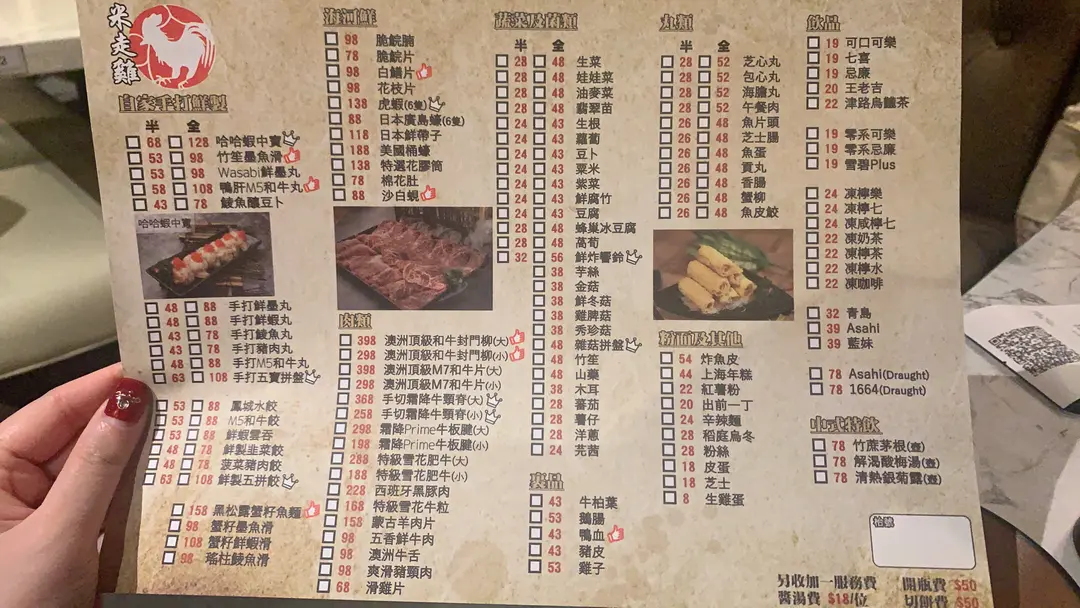 米走雞
自家手打鮮製
半 全
68 128 哈哈蝦中寶
53 98 竹笙墨魚滑
53 98 Wasabi鮮墨丸
58 108 鴨肝M5和牛丸
43 78 鯪魚釀豆卜
哈哈蝦中寶
48 88 手打鮮墨丸
48 88 手打鮮蝦丸
43 78 手打鯪魚丸
43 78 手打豬肉丸
48 88 手打M5和牛丸
63 108 手打五寶拼盤
53 88 鳳城水餃
53 88 M5和牛餃
53 88 鮮蝦雲吞
48 78 鮮製韭菜餃
48 78 菠菜豬肉餃
63 108 鮮製五拼餃
158 黑松露蟹籽魚麵
98 蟹籽墨魚滑
108 蟹籽鮮蝦滑
98 瑤柱鯪魚滑
海河鮮
98 脆鯇腩
78 脆鯇片
98 白鱔片
98 花枝片
138 虎蝦(6隻)
88 日本廣島蠔(6隻)
118 日本鮮帶子
188 美國桶蠔
138 特選花膠筒
78 棉花肚
88 沙白蜆
肉類
398 澳洲頂級和牛封門柳(大)
298 澳洲頂級和牛封門柳(小)
398 澳洲頂級M7和牛片(大)
298 澳洲頂級M7和牛片(小)
368 手切霜降牛頸脊(大)
258 手切霜降牛頸脊(小)
298 霜降Prime牛板腱(大)
198 霜降Prime牛板腱(小)
288 特級雪花肥牛(大)
188 特級雪花肥牛(小)
228 西班牙黑豚肉
168 特級雪花牛粒
158 蒙古羊肉片
98 五香鮮牛肉
98 澳洲牛舌
98 爽滑豬頸肉
68 滑雞片
蔬菜及菌類
半 全
28 48 生菜
28 48 娃娃菜
28 48 油麥菜
28 48 翡翠苗
24 43 生根
24 43 蘿蔔
24 43 豆卜
24 43 粟米
24 43 紫菜
24 43 鮮腐竹
24 43 豆腐
28 48 蜂巢冰豆腐
28 48 萵筍
32 56 鮮炸響鈴
38 芋絲
38 金菇
38 鮮冬菇
38 雞脾菇
38 秀珍菇
48 雜菇拼盤
48 竹笙
48 山藥
38 木耳
28 蕃茄
28 薯仔
28 洋蔥
24 芫茜
裏品
43 牛柏葉
53 鵝腸
43 鴨血
43 豬皮
53 雞子
丸類
半 全
28 52 芝心丸
28 52 包心丸
28 52 海膽丸
28 52 午餐肉
26 48 魚片頭
26 48 芝士腸
26 48 魚蛋
26 48 貢丸
26 48 香腸
26 48 蟹柳
26 48 魚皮餃
粉面及其他
54 炸魚皮
44 上海年糕
22 紅薯粉
20 出前一丁
24 辛辣麵
28 稻庭烏冬
28 粉絲
18 皮蛋
18 芝士
8 生雞蛋
飲品
19 可口可樂
19 七喜
19 忌廉
20 王老吉
22 津路烏龍茶
19 零系可樂
19 零系忌廉
19 雪碧Plus
24 凍檸樂
24 凍檸七
24 凍咸檸七
22 凍奶茶
22 凍檸茶
22 凍檸水
22 凍咖啡
32 青島
39 Asahi
39 藍妹
78 Asahi(Draught)
78 1664(Draught)
中式特飲
78 竹蔗茅根(壺)
78 解渴酸梅湯(壺)
78 清熱銀菊露(壺)
枱號
另收加一服務費 開瓶費 $50
醬湯費 $18/位 切餅費 $50